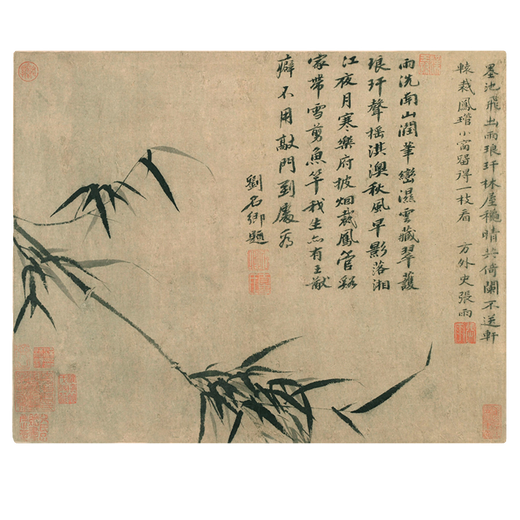 墨池飛出雨琅玕林屋穐晴共倚闌不逐軒
轅裁鳳琯小窗留得一枝看 方外史張雨
雨洗南山潤華巒濕雲藏翠護
琅玕聲搖淇澳秋風早影落湘
江夜月寒樂府披烟裁鳳管谿
家帶雪剪魚竿我生亦有王猷
癖不用敲門到處看
劉石卿題